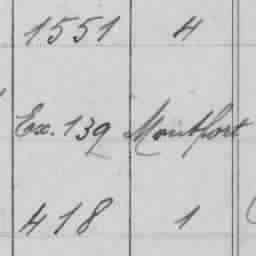 1551 4
Ex. 139 Montfort
418 1